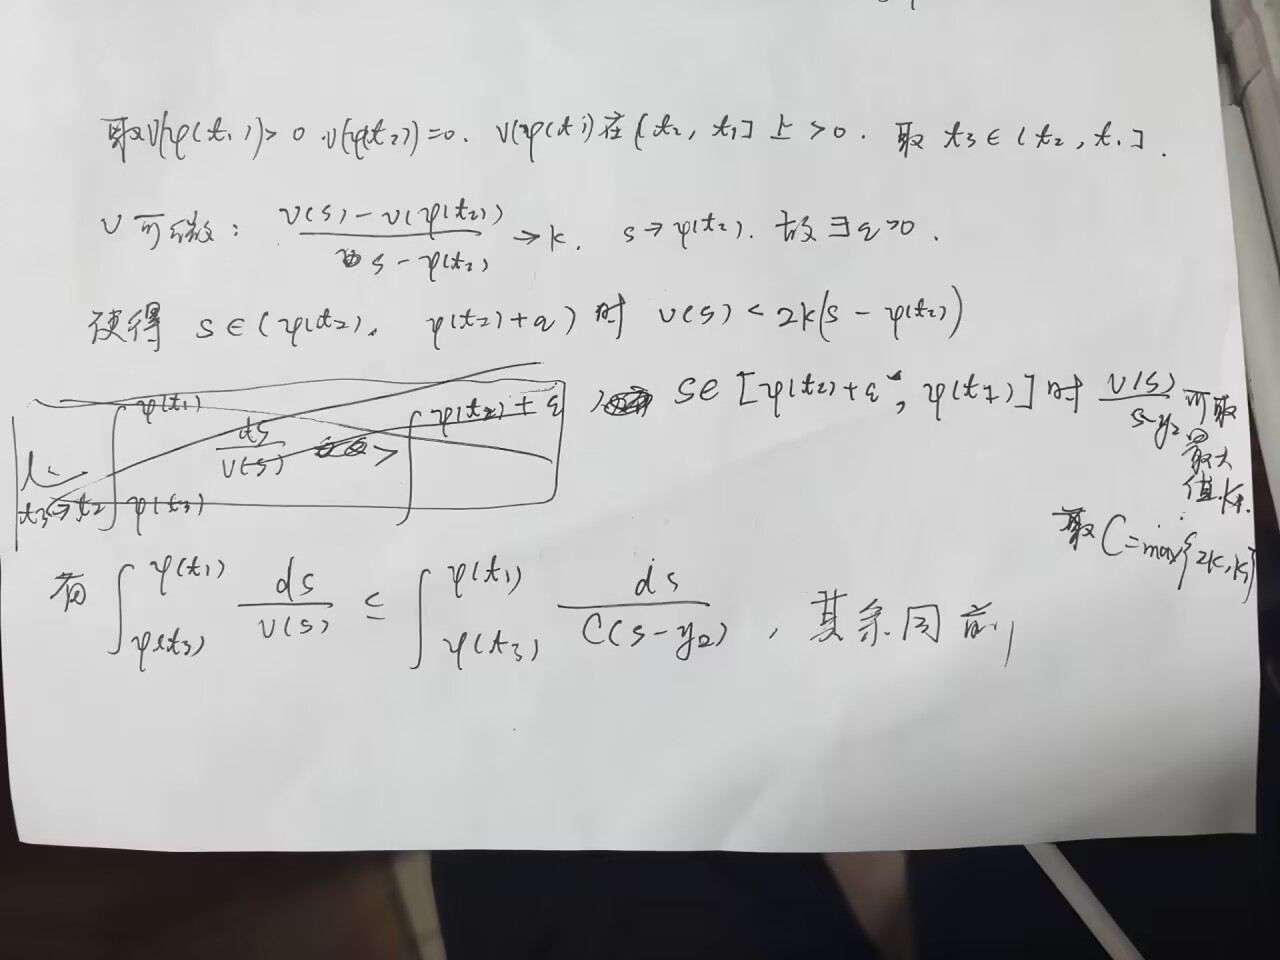 取v(φ(t₁))>0 v(φ(t₂))=0. v(φ(t))在(t₂, t₁]上>0. 取 t₃∈(t₂, t₁].
v可微: (v(s)-v(φ(t₂)))/(s-φ(t₂)) →k. s→φ(t₂). 故∃ε>0.
使得 s∈(φ(t₂), φ(t₂)+ε)时 v(s)<2k(s-φ(t₂))
s∈[φ(t₂)+ε, φ(t₁)]时 v(s)/(s-y₂) 可取
最大
值k₁.
取C=max{2k,k₁}
有 ∫_{φ(t₃)}^{φ(t₁)} ds/v(s) ≤ ∫_{φ(t₃)}^{φ(t₁)} ds/(C(s-y₂)), 其余同前,